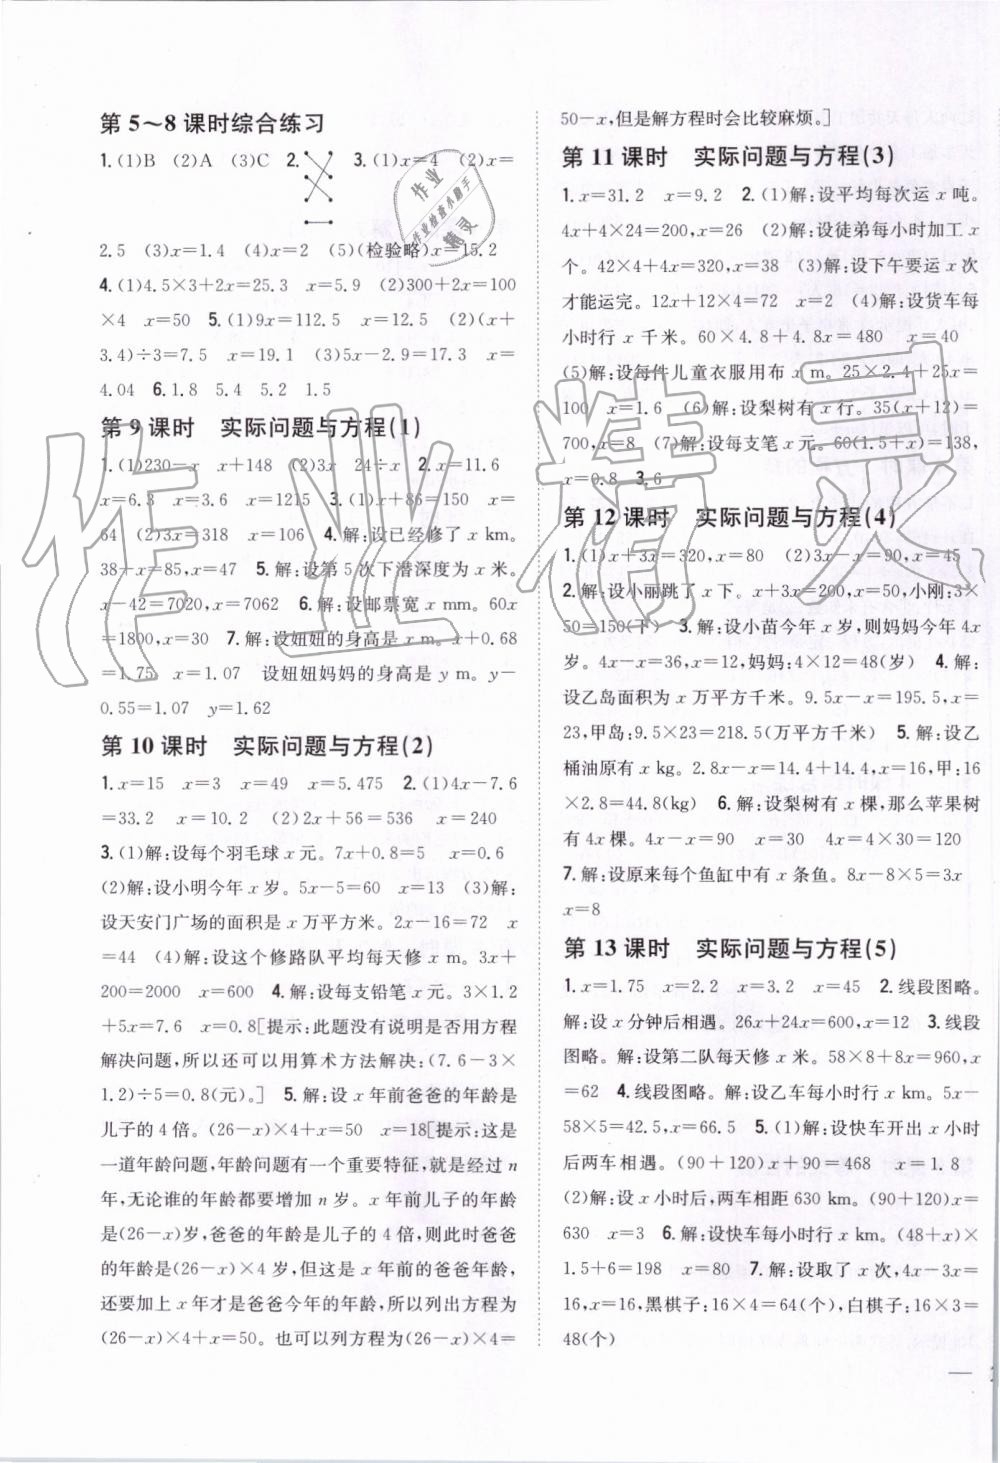 第 5～8 课时综合练习
1.(1)B (2)A (3)C 2. 3.(1)x=4 (2)x=
2.5 (3)x=1.4 (4)x=2 (5)(检验略)x=15.2
4.(1)4.5×3+2x=25.3 x=5.9 (2)300+2x=100
×4 x=50 5.(1)9x=112.5 x=12.5 (2)(x+
3.4)÷3=7.5 x=19.1 (3)5x-2.9=17.3 x=
4.04 6.1.8 5.4 5.2 1.5
第 9 课时 实际问题与方程(1)
1.(1)230-x x+148 (2)3x 24÷x 2.x=11.6
x=6.3 x=3.6 x=1215 3.(1)x+86=150 x=
64 (2)3x=318 x=106 4.解:设已经修了 x km。
38+x=85,x=47 5.解:设第 5 次下潜深度为 x 米。
x-42=7020,x=7062 6.解:设邮票宽 x mm。60x
=1800,x=30 7.解:设妞妞的身高是 x m。x+0.68
=1.75 x=1.07 设妞妞妈妈的身高是 y m。y-
0.55=1.07 y=1.62
第 10 课时 实际问题与方程(2)
1.x=15 x=3 x=49 x=5.475 2.(1)4x-7.6
=33.2 x=10.2 (2)2x+56=536 x=240
3.(1)解:设每个羽毛球 x 元。7x+0.8=5 x=0.6
(2)解:设小明今年 x 岁。5x-5=60 x=13 (3)解:
设天安门广场的面积是 x 万平方米。2x-16=72 x
=44 (4)解:设这个修路队平均每天修 x m。3x+
200=2000 x=600 4.解:设每支铅笔 x 元。3×1.2
+5x=7.6 x=0.8[提示:此题没有说明是否用方程
解决问题,所以还可以用算术方法解决:(7.6-3×
1.2)÷5=0.8(元)。] 5.解:设 x 年前爸爸的年龄是
儿子的 4 倍。(26-x)×4+x=50 x=18[提示:这是
一道年龄问题,年龄问题有一个重要特征,就是经过 n
年,无论谁的年龄都要增加 n 岁。x 年前儿子的年龄
是(26-x)岁,爸爸的年龄是儿子的 4 倍,则此时爸爸
的年龄是(26-x)×4 岁,但这是 x 年前的爸爸年龄,
还要加上 x 年才是爸爸今年的年龄,所以列出方程为
(26-x)×4+x=50。也可以列方程为(26-x)×4=
50-x,但是解方程时会比较麻烦。]
第 11 课时 实际问题与方程(3)
1.x=31.2 x=9.2 2.(1)解:设平均每次运 x 吨。
4x+4×24=200,x=26 (2)解:设徒弟每小时加工 x
个。42×4+4x=320,x=38 (3)解:设下午要运 x 次
才能运完。12x+12×4=72 x=2 (4)解:设货车每
小时行 x 千米。60×4.8+4.8x=480 x=40
(5)解:设每件儿童衣服用布 x m。25×2.4+25x=
100 x=1.6 (6)解:设梨树有 x 行。35(x+12)=
700,x=8 (7)解:设每支笔 x 元。60(1.5+x)=138,
x=0.8 3.3.6
第 12 课时 实际问题与方程(4)
1.(1)x+3x=320,x=80 (2)3x-x=90,x=45
2.解:设小丽跳了 x 下。x+3x=200,x=50,小刚:3×
50=150(下) 3.解:设小苗今年 x 岁,则妈妈今年 4x
岁。4x-x=36,x=12,妈妈:4×12=48(岁) 4.解:
设乙岛面积为 x 万平方千米。9.5x-x=195.5,x=
23,甲岛:9.5×23=218.5(万平方千米) 5.解:设乙
桶油原有 x kg。2.8x-x=14.4+14.4,x=16,甲:16
×2.8=44.8(kg) 6.解:设梨树有 x 棵,那么苹果树
有 4x 棵。4x-x=90 x=30 4x=4×30=120
7.解:设原来每个鱼缸中有 x 条鱼。8x-8×5=3x
x=8
第 13 课时 实际问题与方程(5)
1.x=1.75 x=2.2 x=3.2 x=45 2.线段图略。
解:设 x 分钟后相遇。26x+24x=600,x=12 3.线段
图略。解:设第二队每天修 x 米。58×8+8x=960,x
=62 4.线段图略。解:设乙车每小时行 x km。5x-
58×5=42.5,x=66.5 5.(1)解:设快车开出 x 小时
后两车相遇。(90+120)x+90=468 x=1.8
(2)解:设 x 小时后,两车相距 630 km。(90+120)x=
630 x=3 6.解:设快车每小时行 x km。(48+x)×
1.5+6=198 x=80 7.解:设取了 x 次,4x-3x=
16,x=16,黑棋子:16×4=64(个),白棋子:16×3=
48(个)
作业精灵
作业
作业检查小助手
精灵